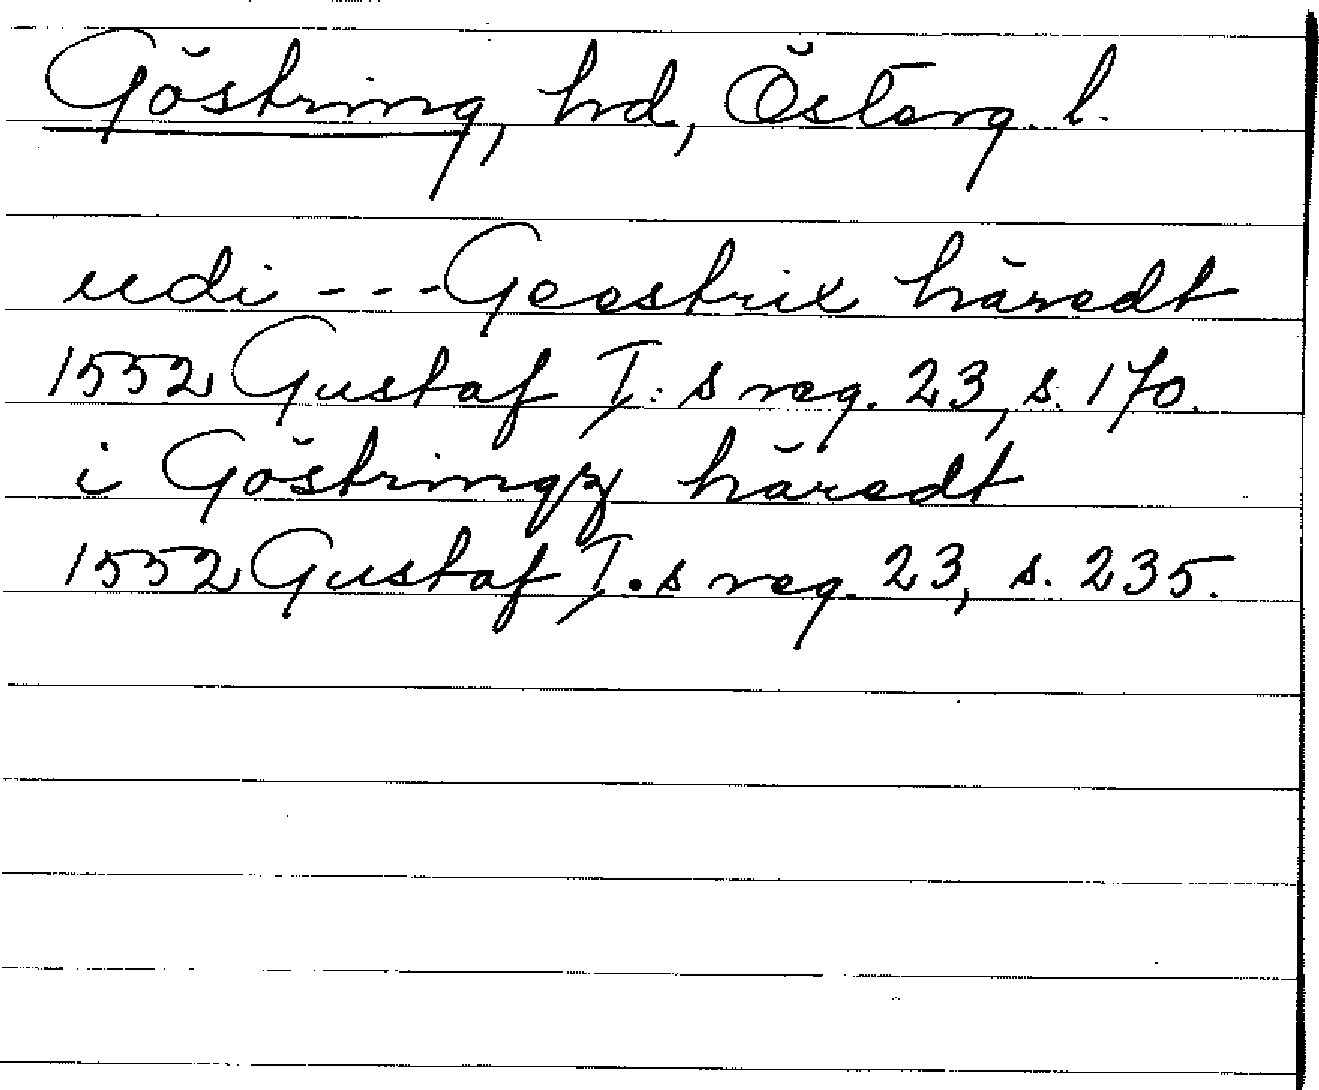 Göstring, hd, Österg. l.
udi --- Geestrix häredt
1552 Gustaf I:s reg. 23, s. 170.
i Göstringz häredt
1552 Gustaf I:s reg. 23, s. 235.